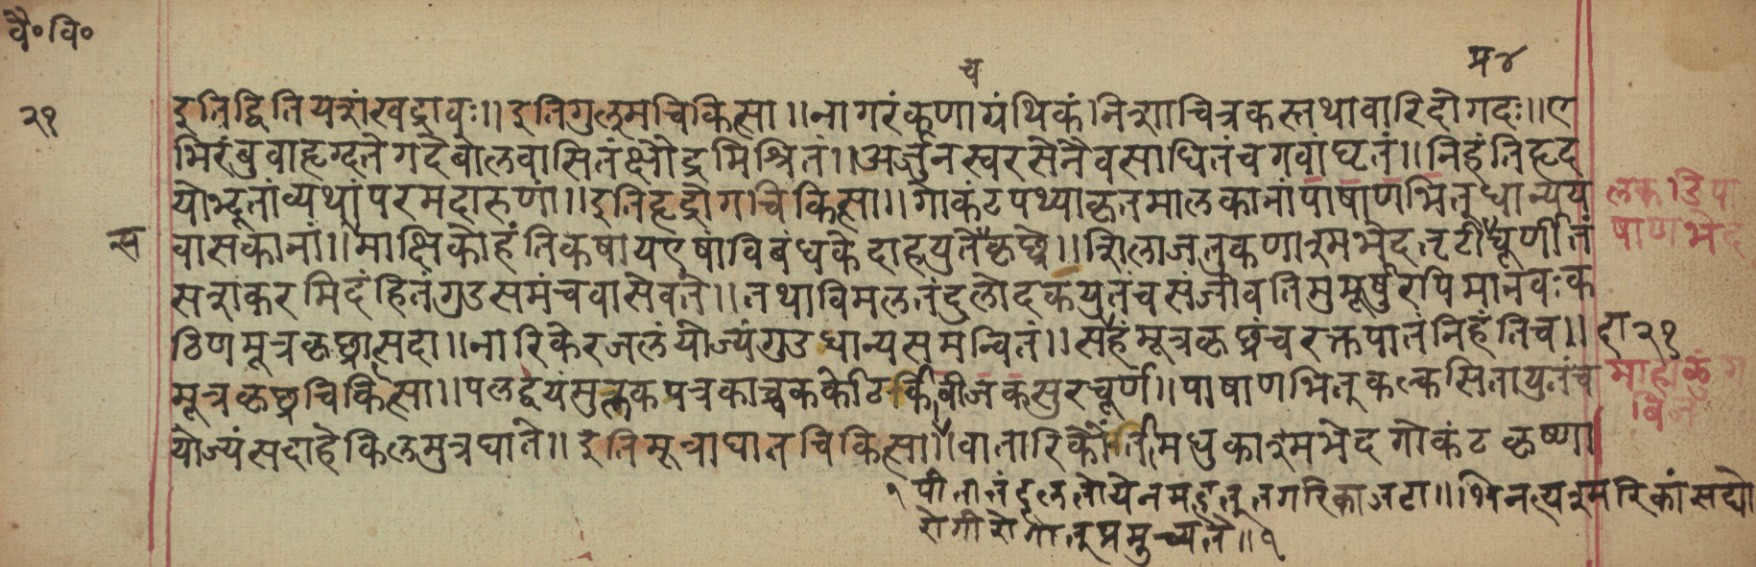 वै॰वि॰
प्र४
च
२१
इतिद्वितियशंखद्रावः॥इतिगुल्मचिकित्सा॥नागरंकणाग्रंथिकंनिशाचित्रकस्तथावारिदोगदः॥ए
भिरंबुवाहृग्दतेगदेबालवासितंक्षौद्रमिश्रितं॥अर्जुनस्वरसेनैवसाधितंचगवांघृतं॥निहंतिहृद
योद्भूतांव्यथांपरमदारुणां॥इतिहृद्रोगचिकित्सा॥गोकंटपथ्याकृतमालकानांपाषाणभित्धान्यय
लकडिपा
वासकानां॥माक्षिकोहंतिकषायएषांविबंधकेदाहयुतेकृछ्रे॥शिलाजतुकणाश्मभेदतृटीचूर्णीतं
षाणभेद
सशंकरमिदंहितंगुडसमंचवासेवते॥तथाविमलतंदुलोदकयुतंचसंजीवतिमुमूर्षुरपिमानवःक
ठिणमूत्रकृछ्रात्सदा॥नारिकेरजलंयोज्यंगुडधान्यसमन्वितं॥सहंमूत्रकृछ्रंचरक्तपातंनिहंतिच॥
२१
मूत्रकृछ्रचिकित्सा॥पलद्वयंमुस्तकपत्रकाच्चकर्कोटिकीबीजकसुरचूर्णं॥पाषाणभित्कल्कसितायुतंच
योज्यंसदाहेकिलमुत्रघाते॥इतिमूत्राघातचिकित्सा॥वातारिकोंतीमधुकाश्मभेदगोकंटकृष्णा
१पीतातंदुलतोयेनमहत्तूतगरिकाजटा॥भिनत्यश्मरिकांसद्यो
रोगीरोगात्प्रमुच्यते॥१